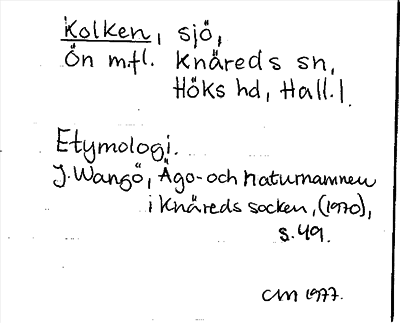 Kolken, sjö,
Ön m.fl. Knäreds sn,
Höks hd, Hall. l.
Etymologi.
J. Wangö, Ägo- och naturnamnen
i Knäreds socken, (1970),
s. 49.
CM 1977.